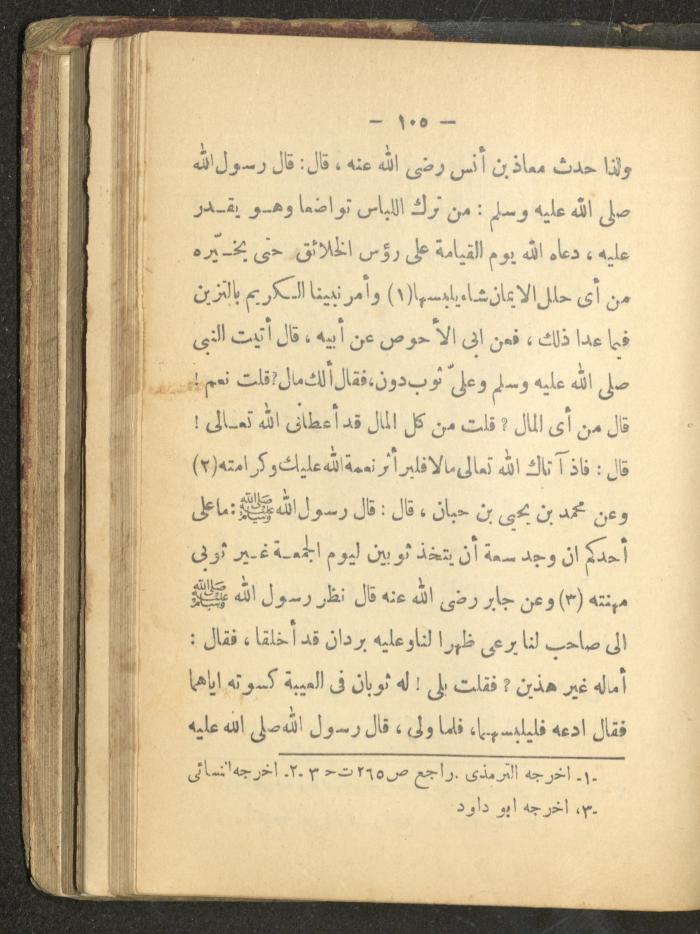 — ١٠٥ —
ولذا حدث معاذ بن أنس رضى الله عنه ، قال : قال رسول الله
صلى الله عليه وسلم : من ترك اللباس تواضعا وهـو يقـدر
عليه ، دعاه الله يوم القيامة على رؤس الخلائق حتى يخـيّره
من أى حلل الايمان شاء يلبسها (١) وأمر نبينا الـكريم بالتزين
فيما عدا ذلك ، فعن ابى الأحوص عن أبيه ، قال أتيت النبى
صلى الله عليه وسلم وعلىّ ثوب دون، فقال ألك مال ? قلت نعم !
قال من أى المال ? قلت من كل المال قد أعطانى الله تعـالى !
قال : فاذ آ تاك الله تعالى مالا فلير أثر نعمة الله عليك وكرامته (٢)
وعن محمد بن يحيى بن حبان ، قال : قال رسول الله ﷺ : ما على
أحدكم ان وجد سعة أن يتخذ ثوبين ليوم الجمعـة غـير ثوبى
مهنته (٣) وعن جابر رضى الله عنه قال نظر رسول الله ﷺ
الى صاحب لنا يرعى ظهرا لنا وعليه بردان قد أخلقا ، فقال :
أماله غير هذين ? فقلت بلى ! له ثوبان فى العيبة كسوته اياهما
فقال ادعه فليلبسهما، فلما ولى ، قال رسول الله صلى الله عليه
-١- اخرجه الترمذى . راجع ص ٢٦٥ ت ح ٣ -٢- اخرجه انسائى
-٣، اخرجه ابو داود